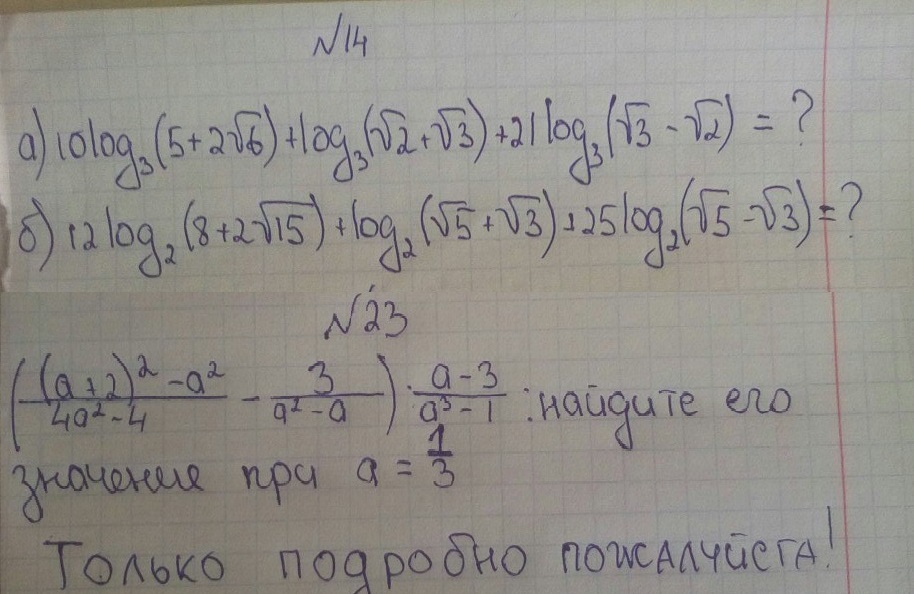 №14
а) 10log₃(5+2√6)+log₃(√2+√3)+21log₃(√3-√2) = ?
б) 12log₂(8+2√15)+log₂(√5+√3)+25log₂(√5-√3)=?
№23
((a+2)²-a²/4a²-4 - 3/a²-a) : a-3/a³-1 : найдите его
значение при a = 1/3
Только подробно пожалуйста!